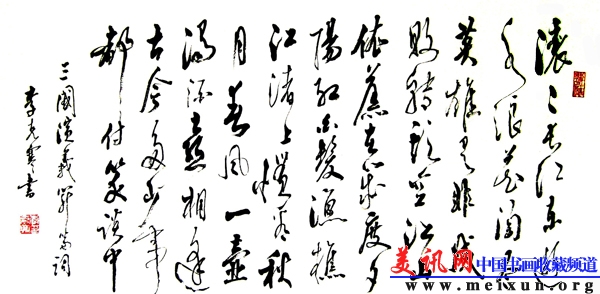 滚滚长江东逝
水浪花淘尽
英雄是非成
败转头空山
依旧在几度夕
阳红白发渔樵
江渚上惯看秋
月春风一壶
浊酒喜相逢
古今多少事
都付笑谈中
三國演義词
李克寒书
美讯网
中国书画收藏频道
www.meixun.org